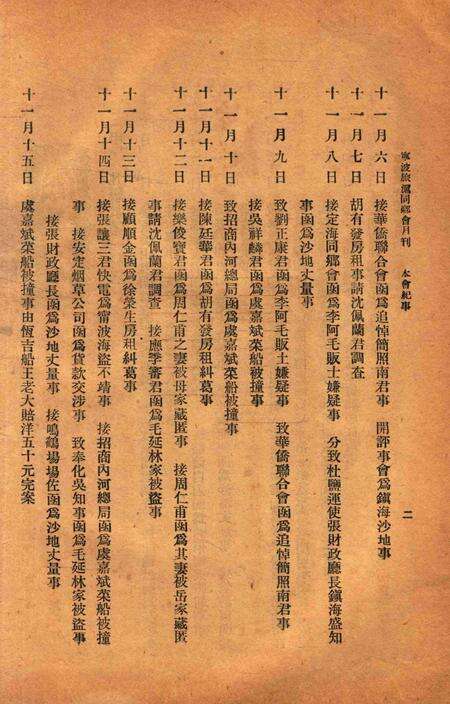 寧波旅滬同鄉會月刊 本會紀事 二
十一月六日 接華僑聯合會函爲追悼簡照南君事 開評事會爲鎭海沙地事
十一月七日 胡有發房租事請沈佩蘭君調査
十一月八日 接定海同鄉會函爲李阿毛販土嫌疑事 分致杜鹽運使張財政廳長鎭海盛知
事函爲沙地丈量事
十一月九日 致劉正康君函爲李阿毛販土嫌疑事 致華僑聯合會函爲追悼簡照南君事
接吳祥麟君函爲虞嘉斌菜船被撞事
十一月十日 致招商內河總局函爲虞嘉斌菜船被撞事
十一月十一日 接陳廷華君函爲胡有發房租糾葛事
十一月十二日 接樂俊寶君函爲周仁甫之妻被母家藏匿事 接周仁甫函爲其妻被岳家藏匿
事請沈佩蘭君調查 接應季審君函爲毛延林家被盜事
十一月十三日 接顧順金函爲徐榮生房租糾葛事
十一月十四日 接張讓三君快電爲甯波海盜不靖事 接招商內河總局函爲虞嘉斌菜船被撞
事 接安定烟草公司函爲貨款交涉事 致奉化吳知事函爲毛延林家被盜事
接張財政廳長函爲沙地丈量事 接鳴鶴場場佐函爲沙地丈量事
十一月十五日 處嘉斌菜船被撞事由恆吉船王老大賠洋五十元完案